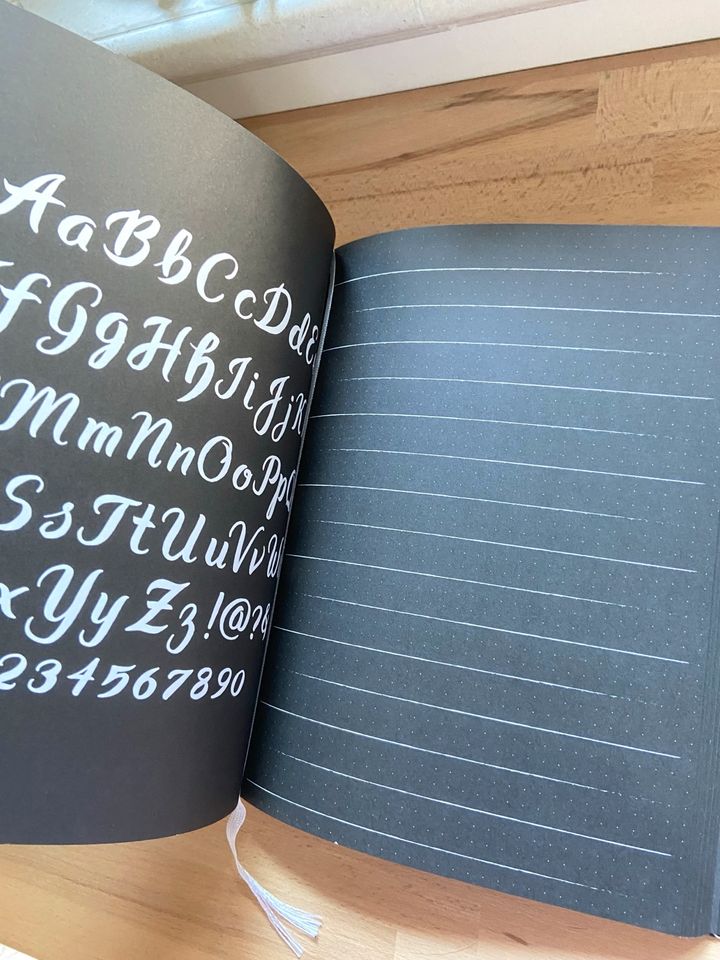 AaBbCcDdE
fGgHhIiJjK
MmNnOoPpQ
SsTtUuVvW
xYyZz!@?&
234567890